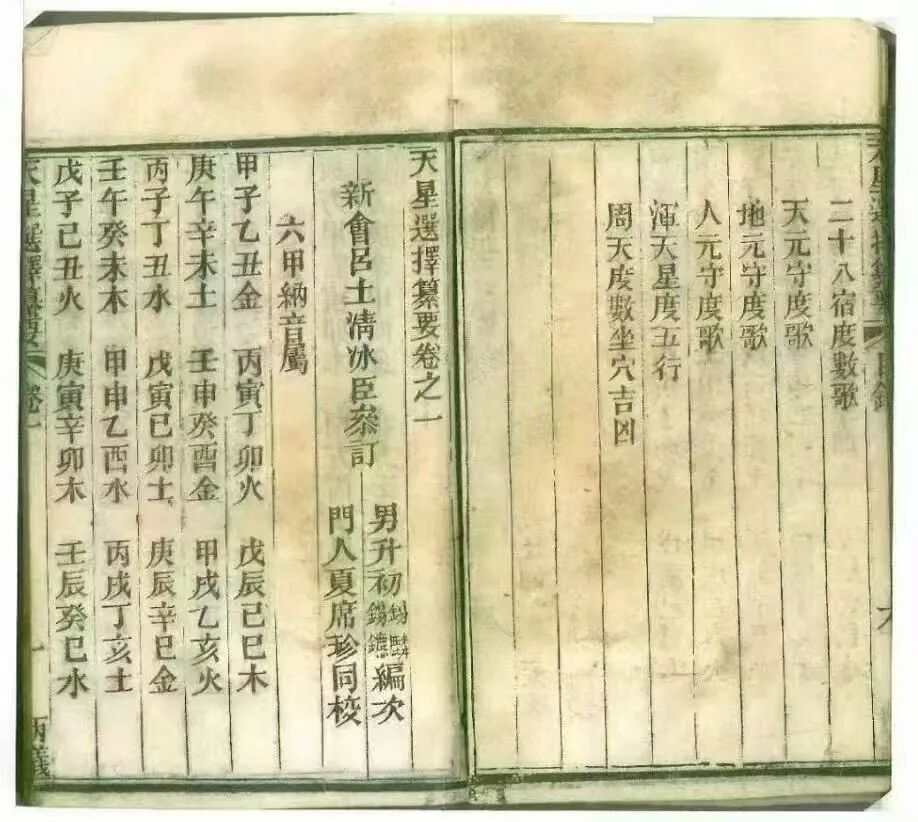 二十八宿度數歌
天元守度歌
地元守度歌
人元守度歌
渾天星度五行
周天度數坐穴吉凶
天星選擇纂要卷之一
新會呂土清冰臣叅訂
男升初
錫麟
編次
門人夏席珍同校
六甲納音屬
甲子乙丑金 丙寅丁卯火 戊辰己巳木
庚午辛未土 壬申癸酉金 甲戌乙亥火
丙子丁丑水 戊寅己卯土 庚辰辛巳金
壬午癸未木 甲申乙酉水 丙戌丁亥土
戊子己丑火 庚寅辛卯木 壬辰癸巳水
天星選擇纂要 卷一
一